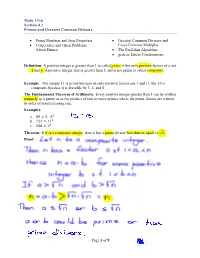 Math 3336
Section 4.3
Primes and Greatest Common Divisors
• Prime Numbers and their Properties
• Conjectures and Open Problems About Primes
• Greatest Common Divisors and Least Common Multiples
• The Euclidian Algorithm
• gcds as Linear Combinations
Definition: A positive integer p greater than 1 is called prime if the only positive factors of p are
1 and p. A positive integer that is greater than 1 and is not prime is called composite.
Example: The integer 11 is prime because its only positive factors are 1 and 11, but 12 is
composite because it is divisible by 3, 4, and 6.
The Fundamental Theorem of Arithmetic: Every positive integer greater than 1 can be written
uniquely as a prime or as the product of two or more primes where the prime factors are written
in order of nondecreasing size.
Examples:
Theorem: If n is a composite integer, then n has a prime divisor less than or equal to √n.
Proof: Let n be a composite integer.
Then n has a factor a s.t. 1<a<n.
Hence n=a·b for some positive
integer b s.t. 1<b<n.
If a>√n and b>√n
n=a·b>√n·√n = n
So a≤√n or b≤√n
a or b could be prime or have
prime divisors.